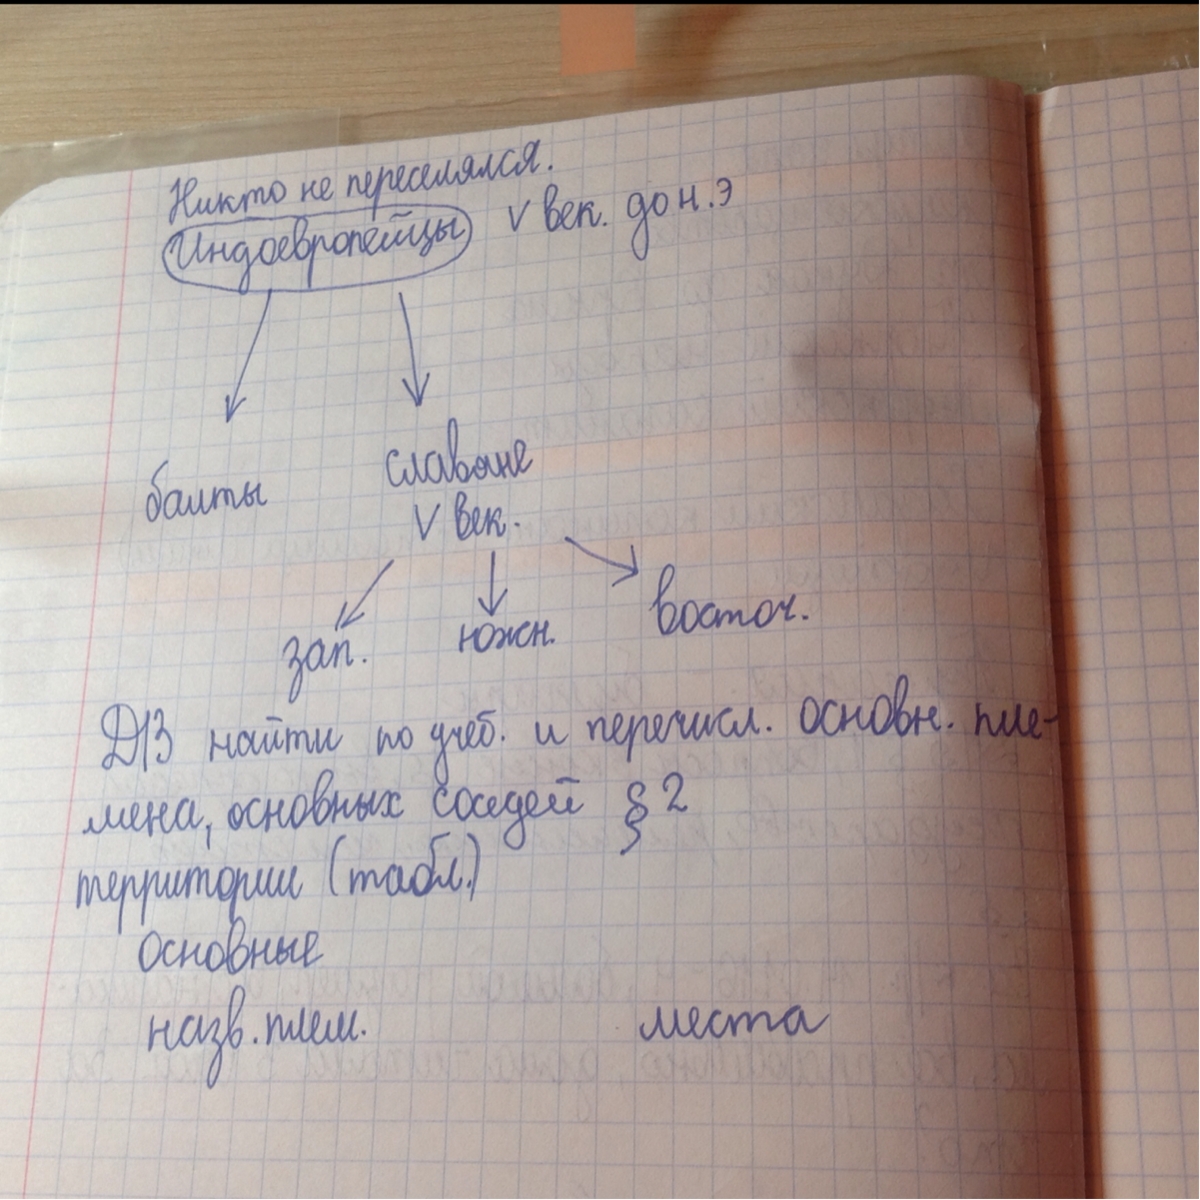 Никто не переселялся.
Индоевропейцы V век. до н.э
балты
славяне
V век.
зап. южн. восточ.
Д/З найти по учеб. и перечисл. основн. пле-
мена, основных соседей § 2
территории (табл.)
основные
назв. плем. места